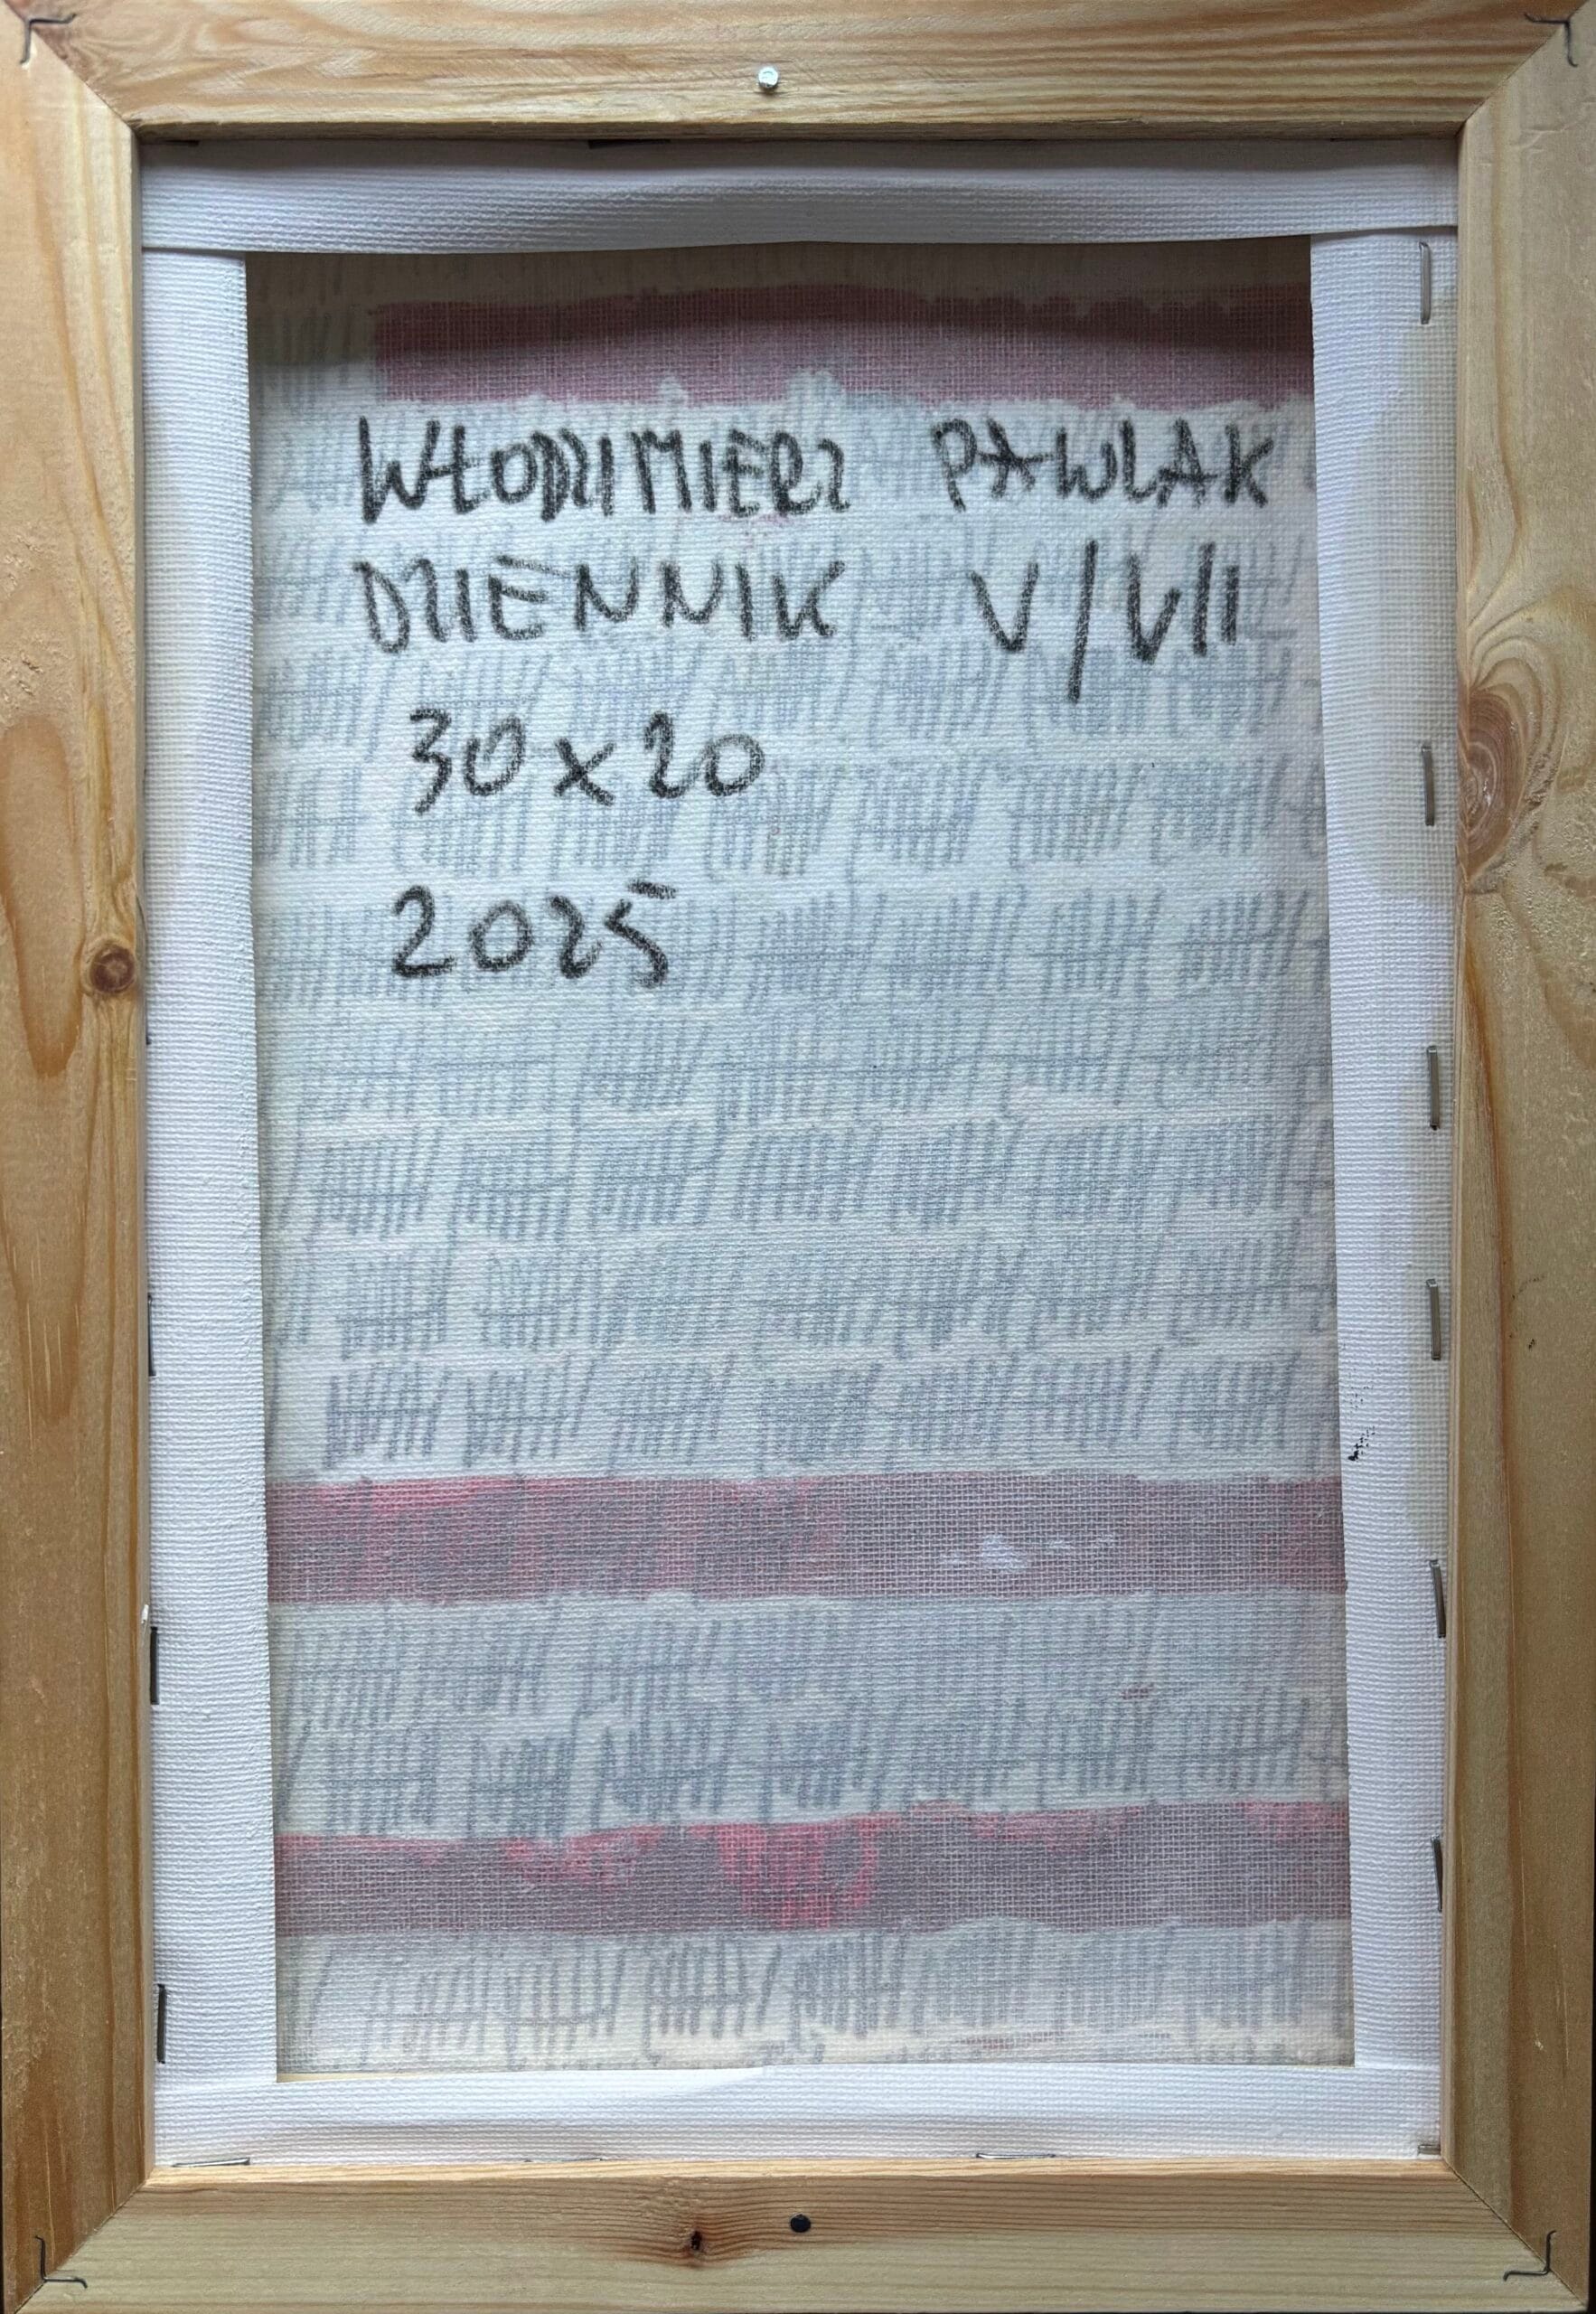 WŁODZIMIERZ PAWLAK
DZIENNIK V/VII
30x20
2025